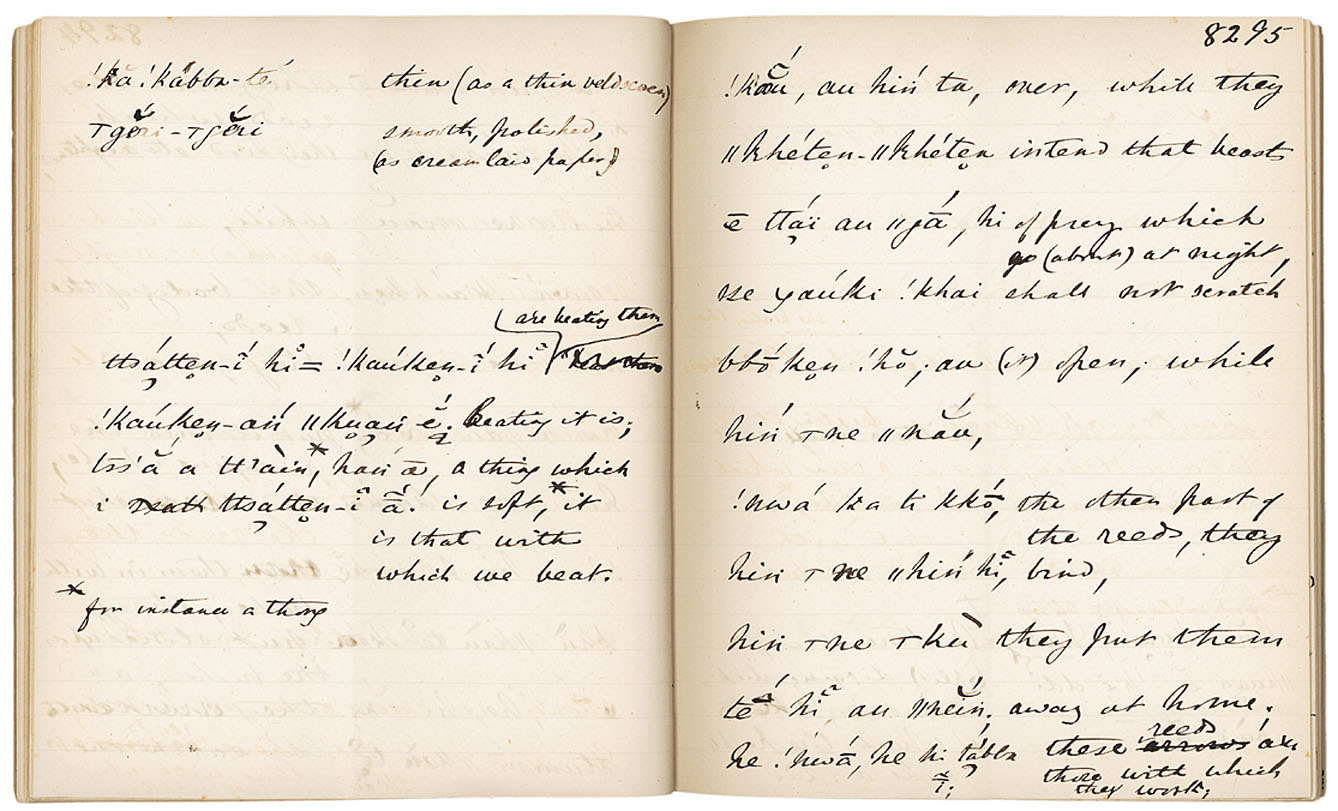 !kā !kắbba-té thin (as a thin veldschoen)
ꞱgŎ́ri-ꞱgŎ́ri smooth, polished,
(as cream laid paper)
are beating them
ttsá̤tten̥-ĩ hĩ = !kaúken̥-ĩ hĩ
!kaúken̥-añ ǁku̥añ ĕ́. Beating it is;
tss'ă a tt'àin,* hañ ā, a thing which
i ttsátten̥-ĩ ā̃! is soft,* it
is that with
which we beat.
* for instance a thong
8295
au hiń ta, over, while they
ǁkhéten̥-ǁkhéten̥ intend that beasts
ē ttái au ǁgā́, hi of prey which
go (about) at night,
sse yaúki !khai shall not scratch
bbṓken̥ !hŏ; au (it) open; while
hiń Ʇne ǁnắu,
!nwá ka ti kkṓ, the other part of
the reeds, they
hiń Ʇne ǁhiń hĩ, bind,
hiń Ʇne Ʇkù they put them
té hĩ au ǁnĕ́in; away at home.
he !nwā́, he hi tábba these reeds are
ĩ; those with which
they work;